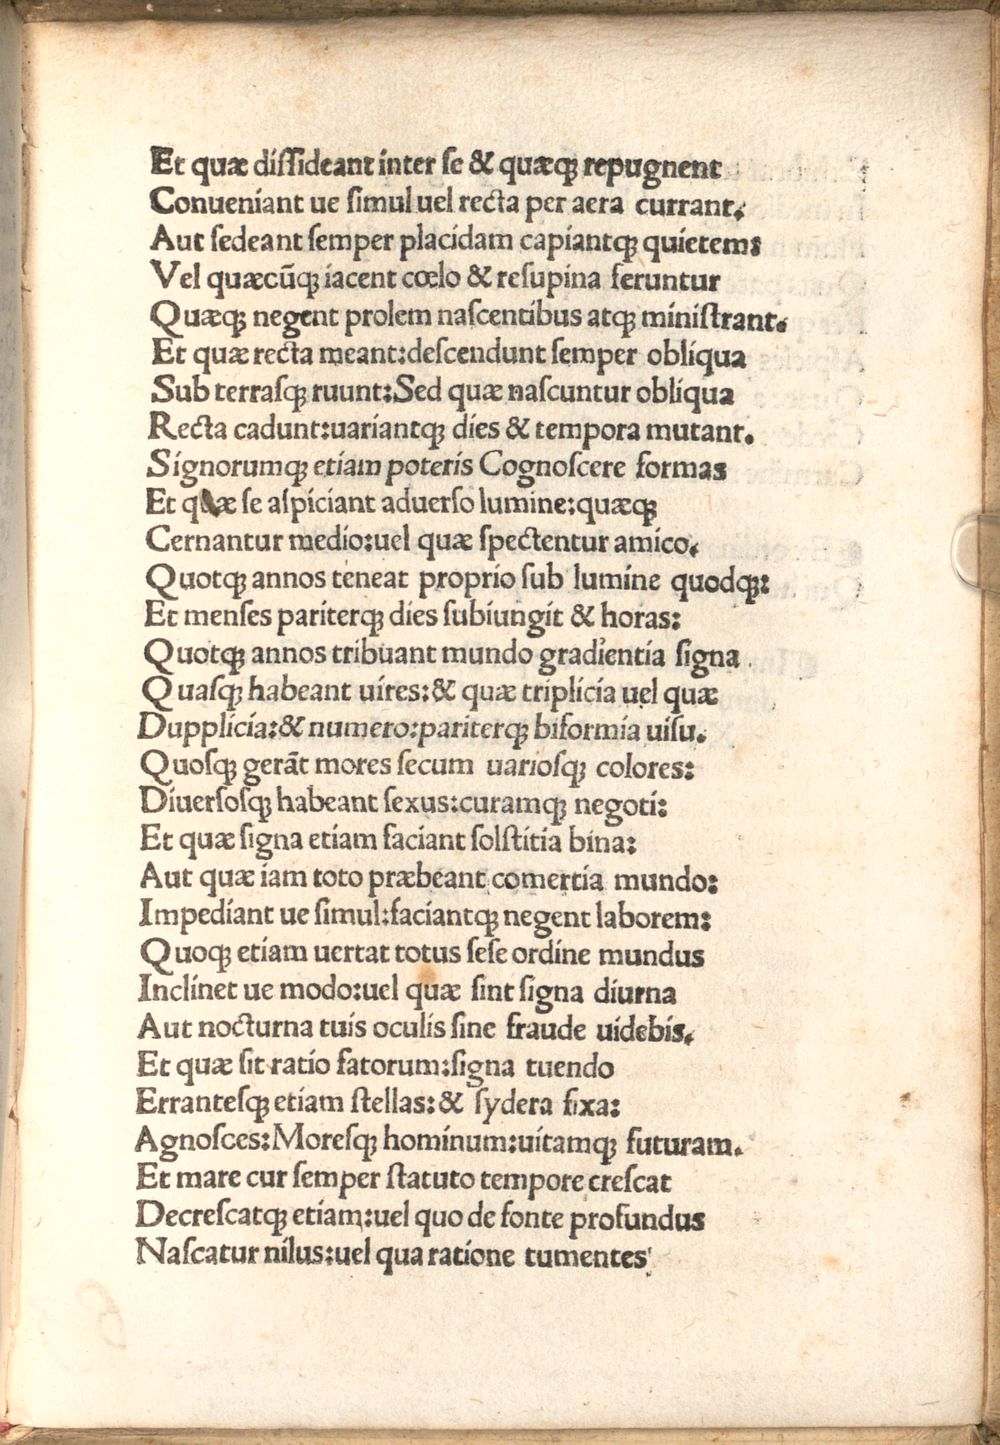 Et quæ diſſideant inter ſe & quæqꝫ repugnent
Conueniant ue ſimul uel recta per aera currant.
Aut ſedeant ſemper placidam capiantqꝫ quietem:
Vel quæcūqꝫ iacent cœlo & reſupina feruntur
Quæqꝫ negent prolem naſcentibus atqꝫ miniſtrant.
Et quæ recta meant:deſcendunt ſemper obliqua
Sub terraſqꝫ ruunt:Sed quæ naſcuntur obliqua
Recta cadunt:uariantqꝫ dies & tempora mutant.
Signorumqꝫ etiam poteris Cognoſcere formas
Et quæ ſe aſpiciant aduerſo lumine:quæqꝫ
Cernantur medio:uel quæ ſpectentur amico.
Quotqꝫ annos teneat proprio ſub lumine quodqꝫ:
Et menſes pariterqꝫ dies ſubiungit & horas:
Quotqꝫ annos tribuant mundo gradientia ſigna.
Quaſqꝫ habeant uires:& quæ triplicia uel quæ
Dupplicia:& numero:pariterqꝫ biformia uiſu.
Quoſqꝫ gerāt mores ſecum uarioſqꝫ colores:
Diuerſoſqꝫ habeant ſexus:curamqꝫ negoti:
Et quæ ſigna etiam faciant ſolſtitia bina:
Aut quæ iam toto præbeant comertia mundo:
Impediant ue ſimul:faciantqꝫ negent laborem:
Quoqꝫ etiam uertat totus ſeſe ordine mundus
Inclinet ue modo:uel quæ ſint ſigna diurna
Aut nocturna tuis oculis ſine fraude uidebis.
Et quæ ſit ratio fatorum:ſigna tuendo
Erranteſqꝫ etiam ſtellas:& ſydera fixa:
Agnoſces:Moreſqꝫ hominum:uitamqꝫ futuram.
Et mare cur ſemper ſtatuto tempore creſcat
Decreſcatqꝫ etiam:uel quo de fonte profundus
Naſcatur nilus:uel qua ratione tumentes